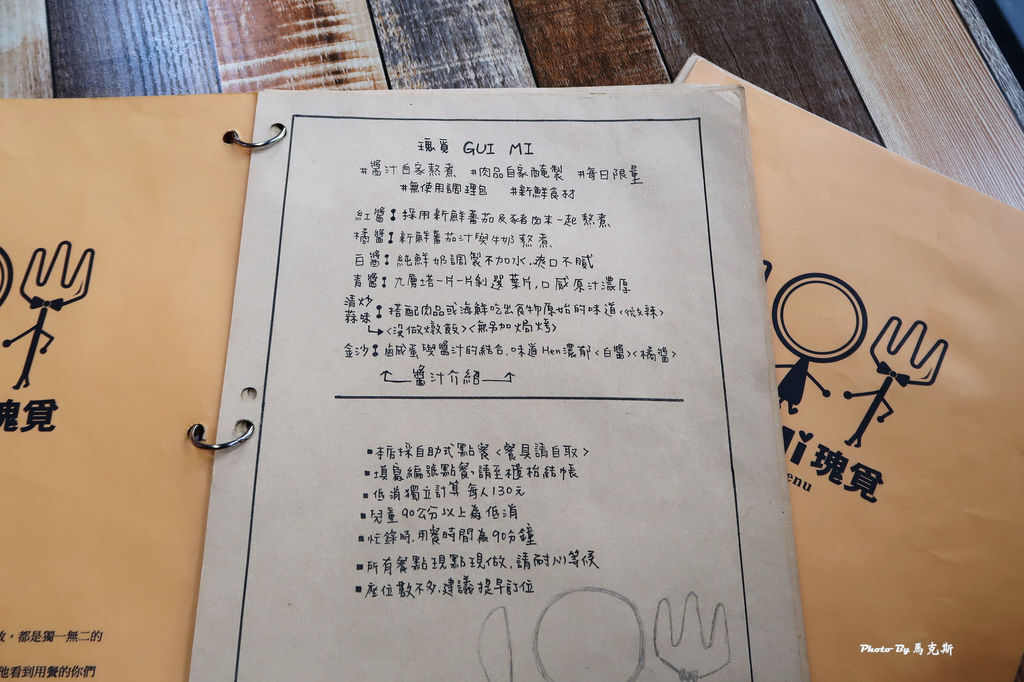 瑰覓 GUI MI
#醬汁自家熬煮 #肉品自家醃製 #每日限量
#無使用調理包 #新鮮食材
紅醬:採用新鮮蕃茄及豬肉末一起熬煮
橘醬:新鮮蕃茄汁與牛奶熬煮
白醬:純鮮奶調製不加水,爽口不膩
青醬:九層塔一片一片剝選葉片,口感原汁濃厚
清炒
蒜味:搭配肉品或海鮮吃出食物原始的味道<微辣>
<沒做燉飯><無另加焗烤>
金沙:鹹蛋與醬汁的結合.味道Hen濃郁<白醬><橘醬>
醬汁介紹
▪本店採自助式點餐<餐具請自取>
▪填寫編號點餐,請至櫃枱結帳
▪低消獨立計算 每人130元
▪兒童90公分以上為低消
▪忙錄時.用餐時間為90分鐘
▪所有餐點現點現做.請耐心等候
▪座位數不多.建議提早訂位
瑰覓
,都是獨一無二的
他看到用餐的你們
Mi 瑰覓
enu
Photo By 馬克斯